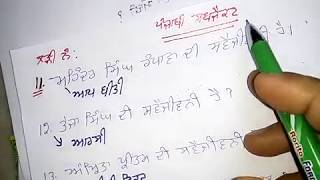 ਪੰਜਾਬੀ ਸਬਜੈਕਟ
ਲੜੀ ਨੰ:
11. ਮਹਿੰਦਰ ਸਿੰਘ ਰੰਧਾਵਾ ਦੀ ਸਵੈਜੀਵਨੀ ਹੈ।
ਆਪ ਬੀਤੀ
12. ਤੇਜਾ ਸਿੰਘ ਦੀ ਸਵੈਜੀਵਨੀ ਹੈ?
ਆਰਸੀ
13. ਅੰਮ੍ਰਿਤਾ ਪ੍ਰੀਤਮ ਦੀ ਸਵੈਜੀਵਨੀ